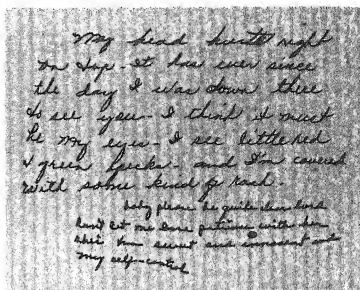 My head hurts right
on top - It has ever since
the day I was down there
to see you - I think it must
be my eyes - I see little red
& green specks - and I'm covered
with some kind of rash.
baby please be quite dear lord
don't let me lose patience with her
she's so sweet and innocent and
my self-control